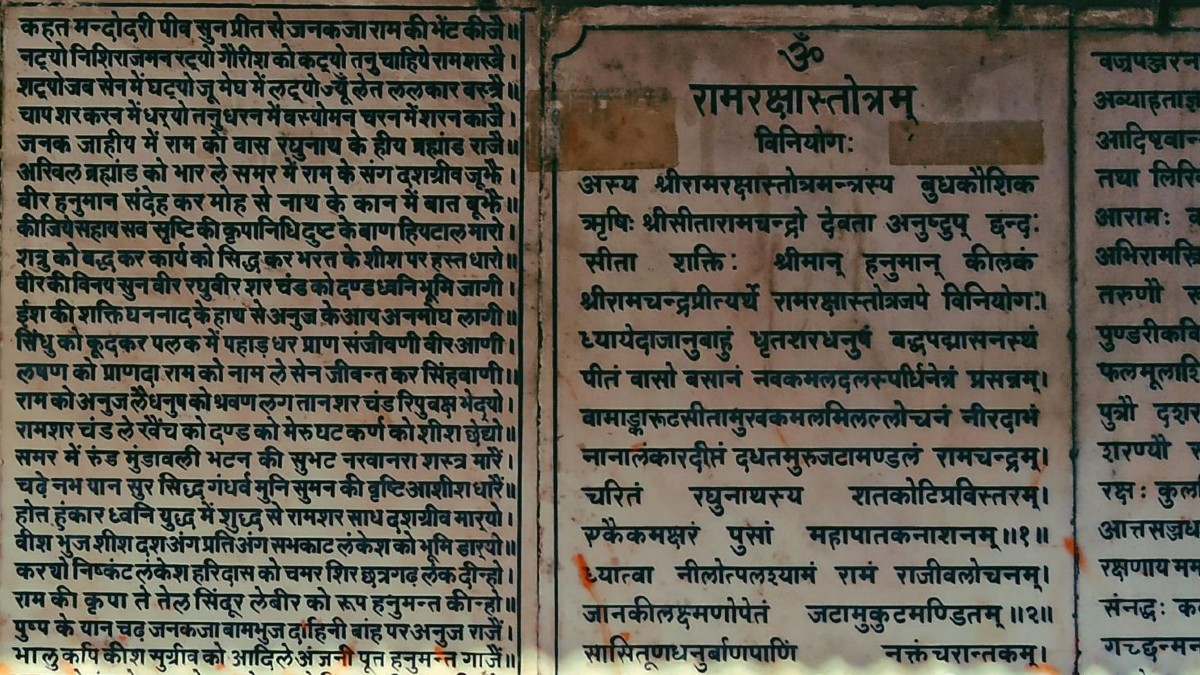 कहत मन्दोदरी पीव सुन प्रीत से जनकजा राम की भेंट कीजै॥
नट्यो निशिराजमन रट्यो गौरीश को कट्यो तनु चाहिये राम शस्त्रै।
शट्योजब सेन में घट्यो जू मेघ में लट्यो ज्यूँ लेत ललकार वस्त्रै॥
चाप शर करन में धर्‌यो तनु धरन में वस्योमन चरन में शरन काजै।
जनक जाहीय में राम को वास रघुनाथ के हीय ब्रह्मांड राजै॥
अखिल ब्रह्मांड को भार ले समर में राम के संग दशग्रीव जूझै।
वीर हनुमान संदेह कर मोह से नाथ के कान में बात बूझै॥
कीजिये सहाय सव सृष्टि की कृपानिधि दुष्ट के बाण हियटाल मारो।
शत्रु को बद्ध कर कार्य को सिद्ध कर भरत के शीश पर हस्त धारो॥
वीर की विनय सुन वीर रघुवीर शर चंड को दण्ड ध्वनि भूमि जागी।
ईश की शक्ति घननाद के हाथ से अनुज के आय अनमोघ लागी॥
सिंधु को कूदकर पलक में पहाड़ धर प्राण संजीवणी वीर आणी।
लषण को प्राणदा राम को नाम ले सेन जीवन्त कर सिंहवाणी॥
राम को अनुज लै धनुष को श्रवण लग तान शर चंड रिपु वक्ष भेद्यो।
रामशर चंड ले खैंच को दण्ड को मेरु घट कर्ण को शीश छेद्यो॥
समर में रुंड मुंडावली भटन की सुभट नरवानरा शस्त्र मारैं।
चढ़े नभ यान सुर सिद्ध गंधर्व मुनि सुमन की वृष्टि आशीश धारैं॥
होत हुंकार ध्वनि युद्ध में शुद्ध से रामशर साध दशग्रीव मार्‌यो।
वीश भुज शीश दश अंग प्रति अंग सभकाट लंकेश को भूमि डार्‌यो॥
कर्‌यो निष्कंट लंकेश हरिदास को चमर शिर छत्रगढ़ लेक दीन्हो।
राम की कृपा ते तेल सिंदूर ले वीर को रूप हनुमन्त कीन्हो॥
पुष्प के यान चढ़ जनकजा बामभुज दाहिनी बांह पर अनुज राजैं।
भालु कपि कीश सुग्रीव को आदिले अंजनी पूत हनुमन्त गाजैं॥
ॐ
रामरक्षास्तोत्रम्
विनियोगः
अस्य श्रीरामरक्षास्तोत्रमन्त्रस्य बुधकौशिक
ऋषिः श्रीसीतारामचन्द्रो देवता अनुष्टुप् छन्दः
सीता शक्तिः श्रीमान् हनुमान् कीलकं
श्रीरामचन्द्रप्रीत्यर्थे रामरक्षास्तोत्रजपे विनियोगः।
ध्यायेदाजानुबाहुं धृतशरधनुषं बद्धपद्मासनस्थं
पीतं वासो बसानं नवकमलदलस्पर्धिनेत्रं प्रसन्नम्।
वामाङ्कारूटसीतामुखकमलमिलल्लोचनं नीरदाभं
नानालंकारदीप्तं दधतमुरुजटामण्डलं रामचन्द्रम्।
चरितं रघुनाथस्य शतकोटिप्रविस्तरम्।
एकैकमक्षरं पुसां महापातकनाशनम्॥१॥
ध्यात्वा नीलोत्पलश्यामं रामं राजीवलोचनम्।
जानकीलक्ष्मणोपेतं जटामुकुटमण्डितम्॥२॥
सासितूणधनुर्बाणपाणिं नक्तंचरान्तकम्।
वज्रपञ्जरन
अव्याहताज्ञ
आदिष्टवान
तथा लिखि
आरामः
अभिरामस्त्रि
तरुणौ
पुण्डरीकवि
फलमूलाशि
पुत्रौ दशर
शरण्यौ
रक्षः कुल
आत्तसज्जध
रक्षणाय मम
संनद्धः क
गच्छन्मन